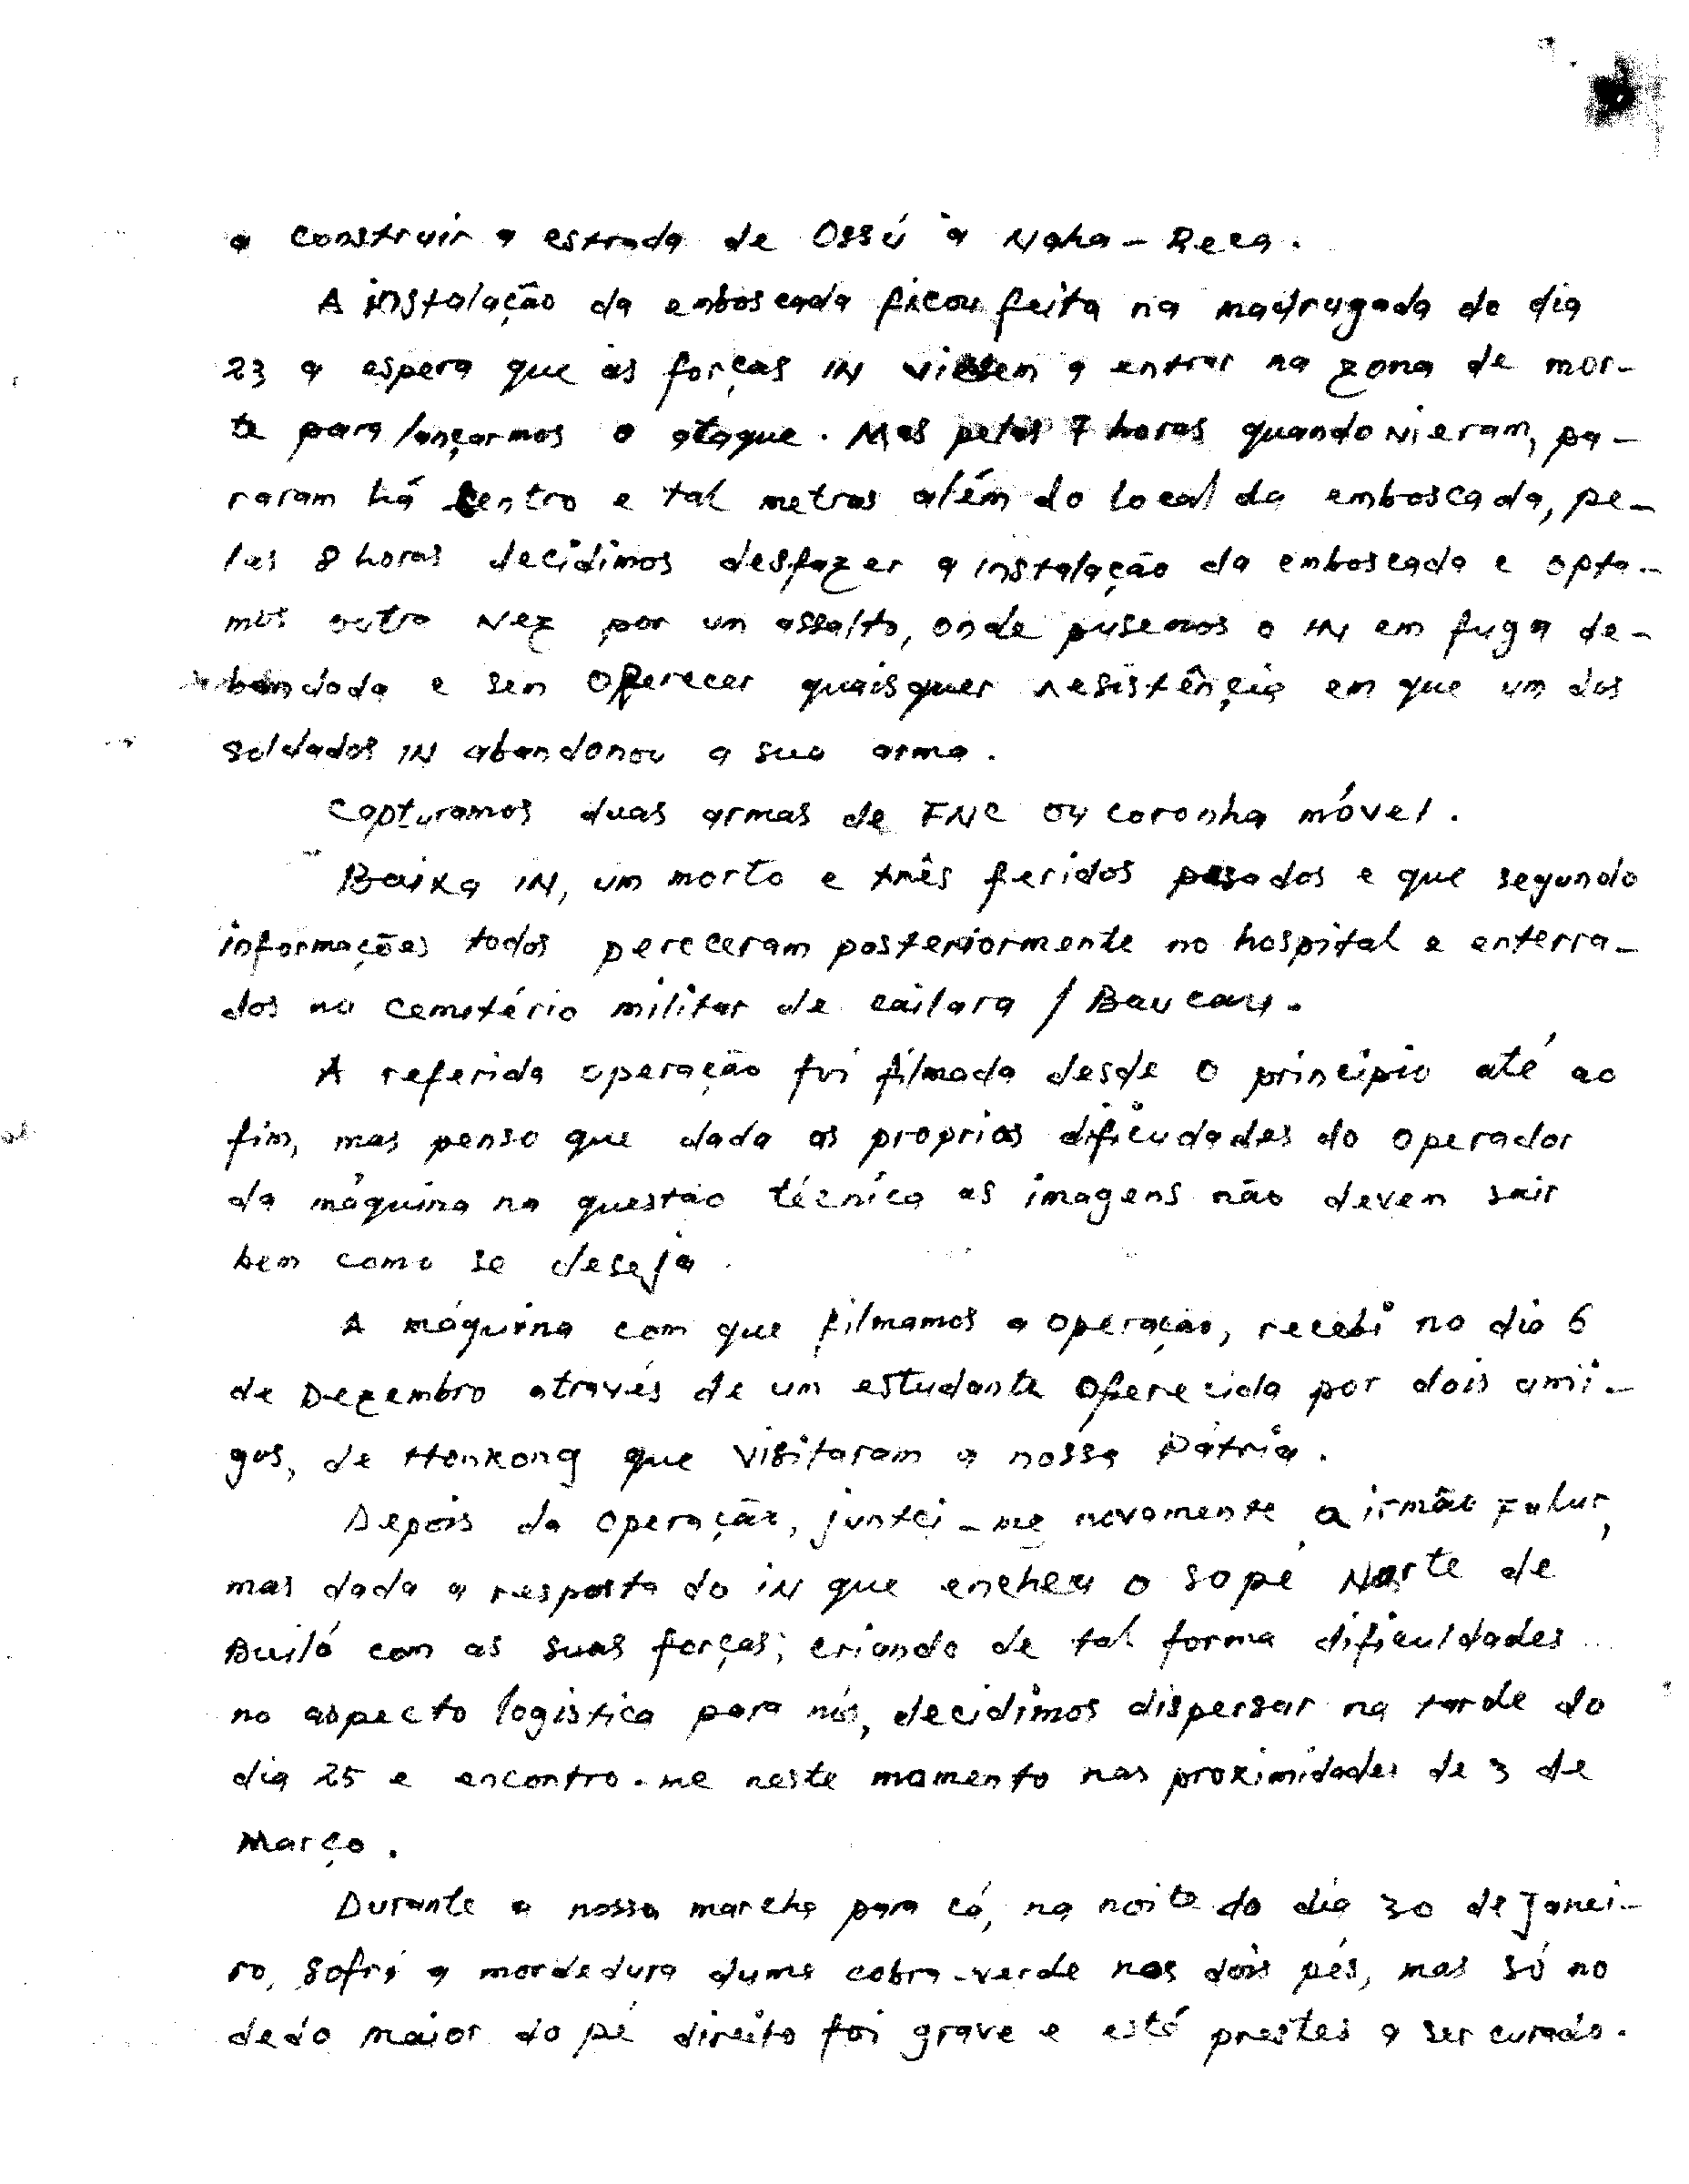 a construir a estrada de Ossú à Naha-Reca.
A instalação da emboscada ficou feita na madrugada do dia
23 a espera que as forças IN viessem a entrar na zona de mor-
te para lançarmos o ataque. Mas pelas 7 horas quando vieram, pa-
raram há centro e tal metros além do local da emboscada, pe-
las 8 horas decidimos desfazer a instalação da emboscada e opta-
mos outra vez por um assalto, onde pusemos o IN em fuga de-
bandada e sem oferecer quaisquer resistência em que um dos
soldados IN abandonou a sua arma.
Capturamos duas armas de FNC ou coronha móvel.
Baixa IN, um morto e três feridos pesados e que segundo
informações todos pereceram posteriormente no hospital e enterra-
dos no cemitério militar de cailara / Baucau.
A referida operação foi filmada desde o principio até ao
fim, mas penso que dada as proprias dificudades do operador
da máquina na questão técnica as imagens não devem sair
bem como se deseja.
A máquina com que filmamos a operação, recebi no dia 6
de Dezembro através de um estudante oferecida por dois ami-
gos, de Honkong que visitaram a nossa Pátria.
Depois da operação, juntei-me novamente a irmão Falur,
mas dada a resposta do IN que encheu o sopé Norte de
Builó com as suas forças; criando de tal forma dificuldades
no aspecto logística para nós, decidimos dispersar na tarde do
dia 25 e encontro-me neste momento nas proximidades de 3 de
Março.
Durante a nossa marcha para cá, na noite do dia 30 de Janei-
ro, sofri a mordedura duma cobra-verde nos dois pés, mas só no
dedo maior do pé direito foi grave e está prestes a ser curado.